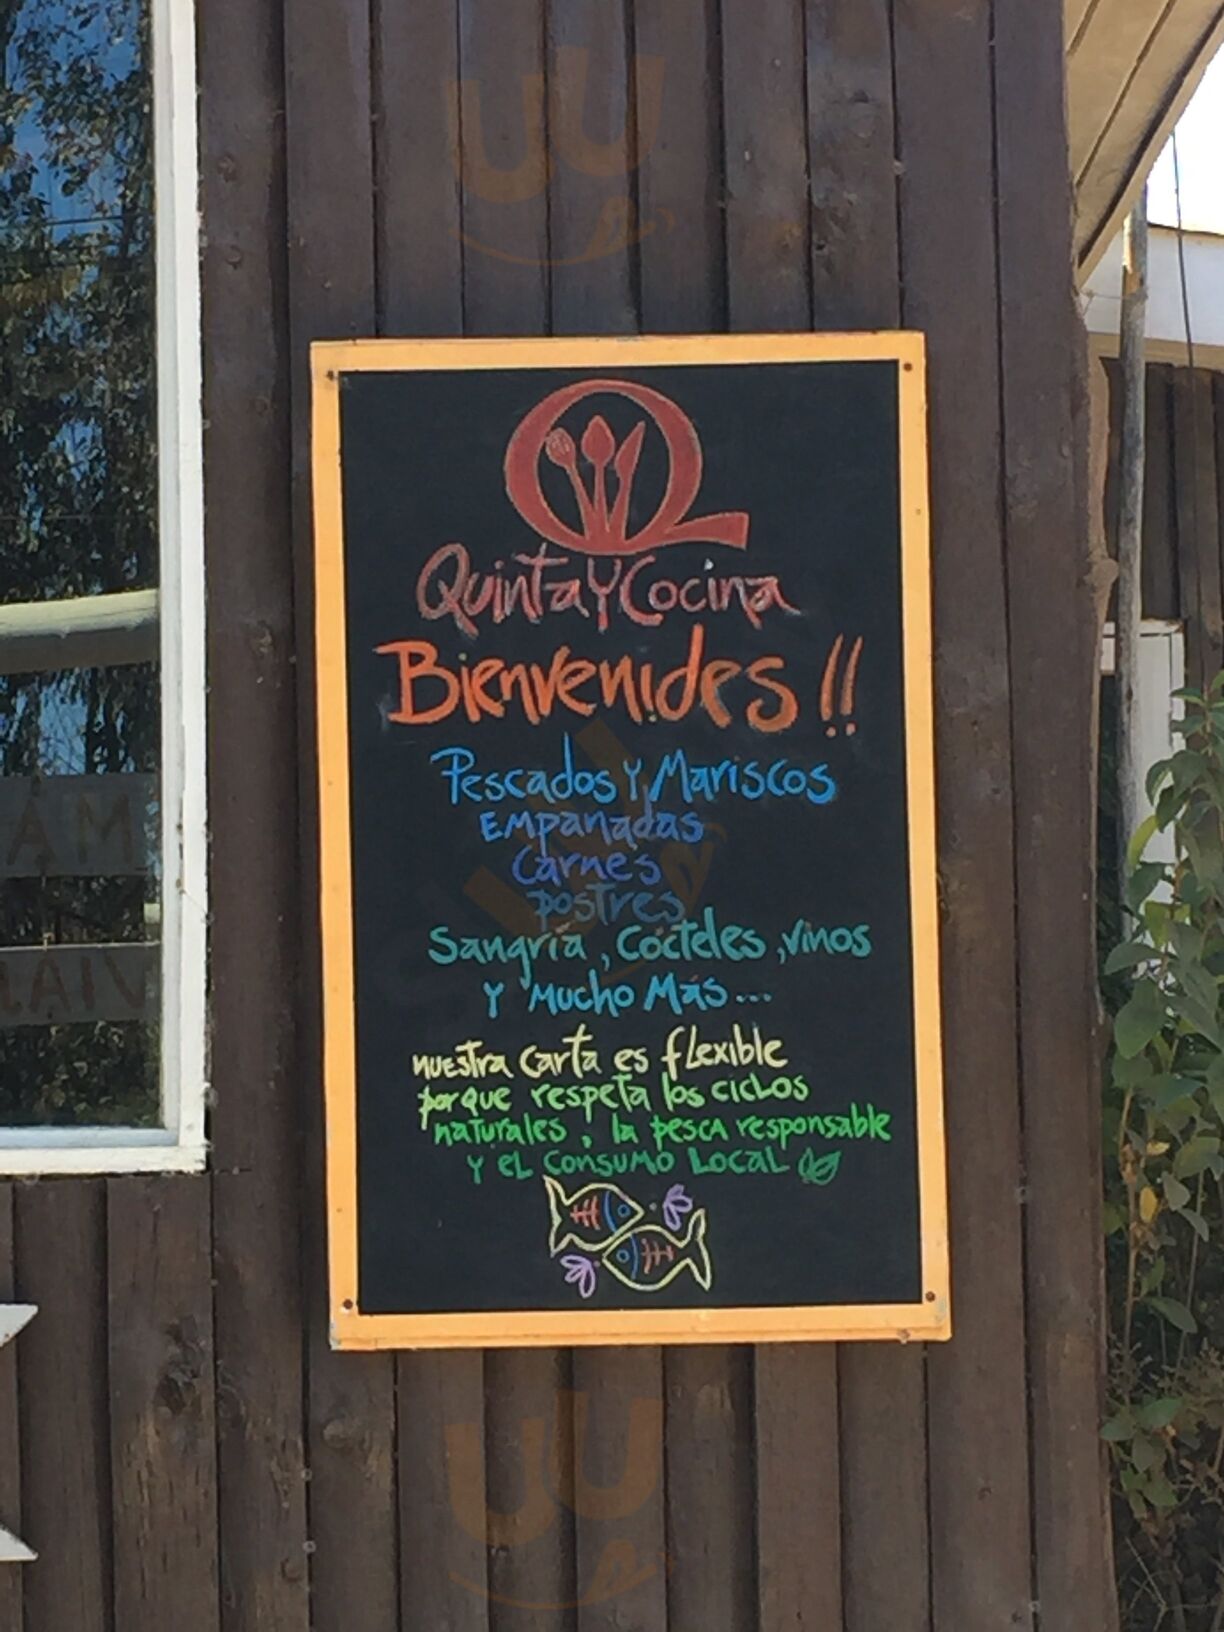 Quinta Y Cocina
Bienvenides !!
Pescados Y Mariscos
Empanadas
Carnes
postres
Sangría, Cócteles, vinos
Y Mucho Más...
nuestra carta es flexible
porque respeta los ciclos
naturales, la pesca responsable
y el consumo local